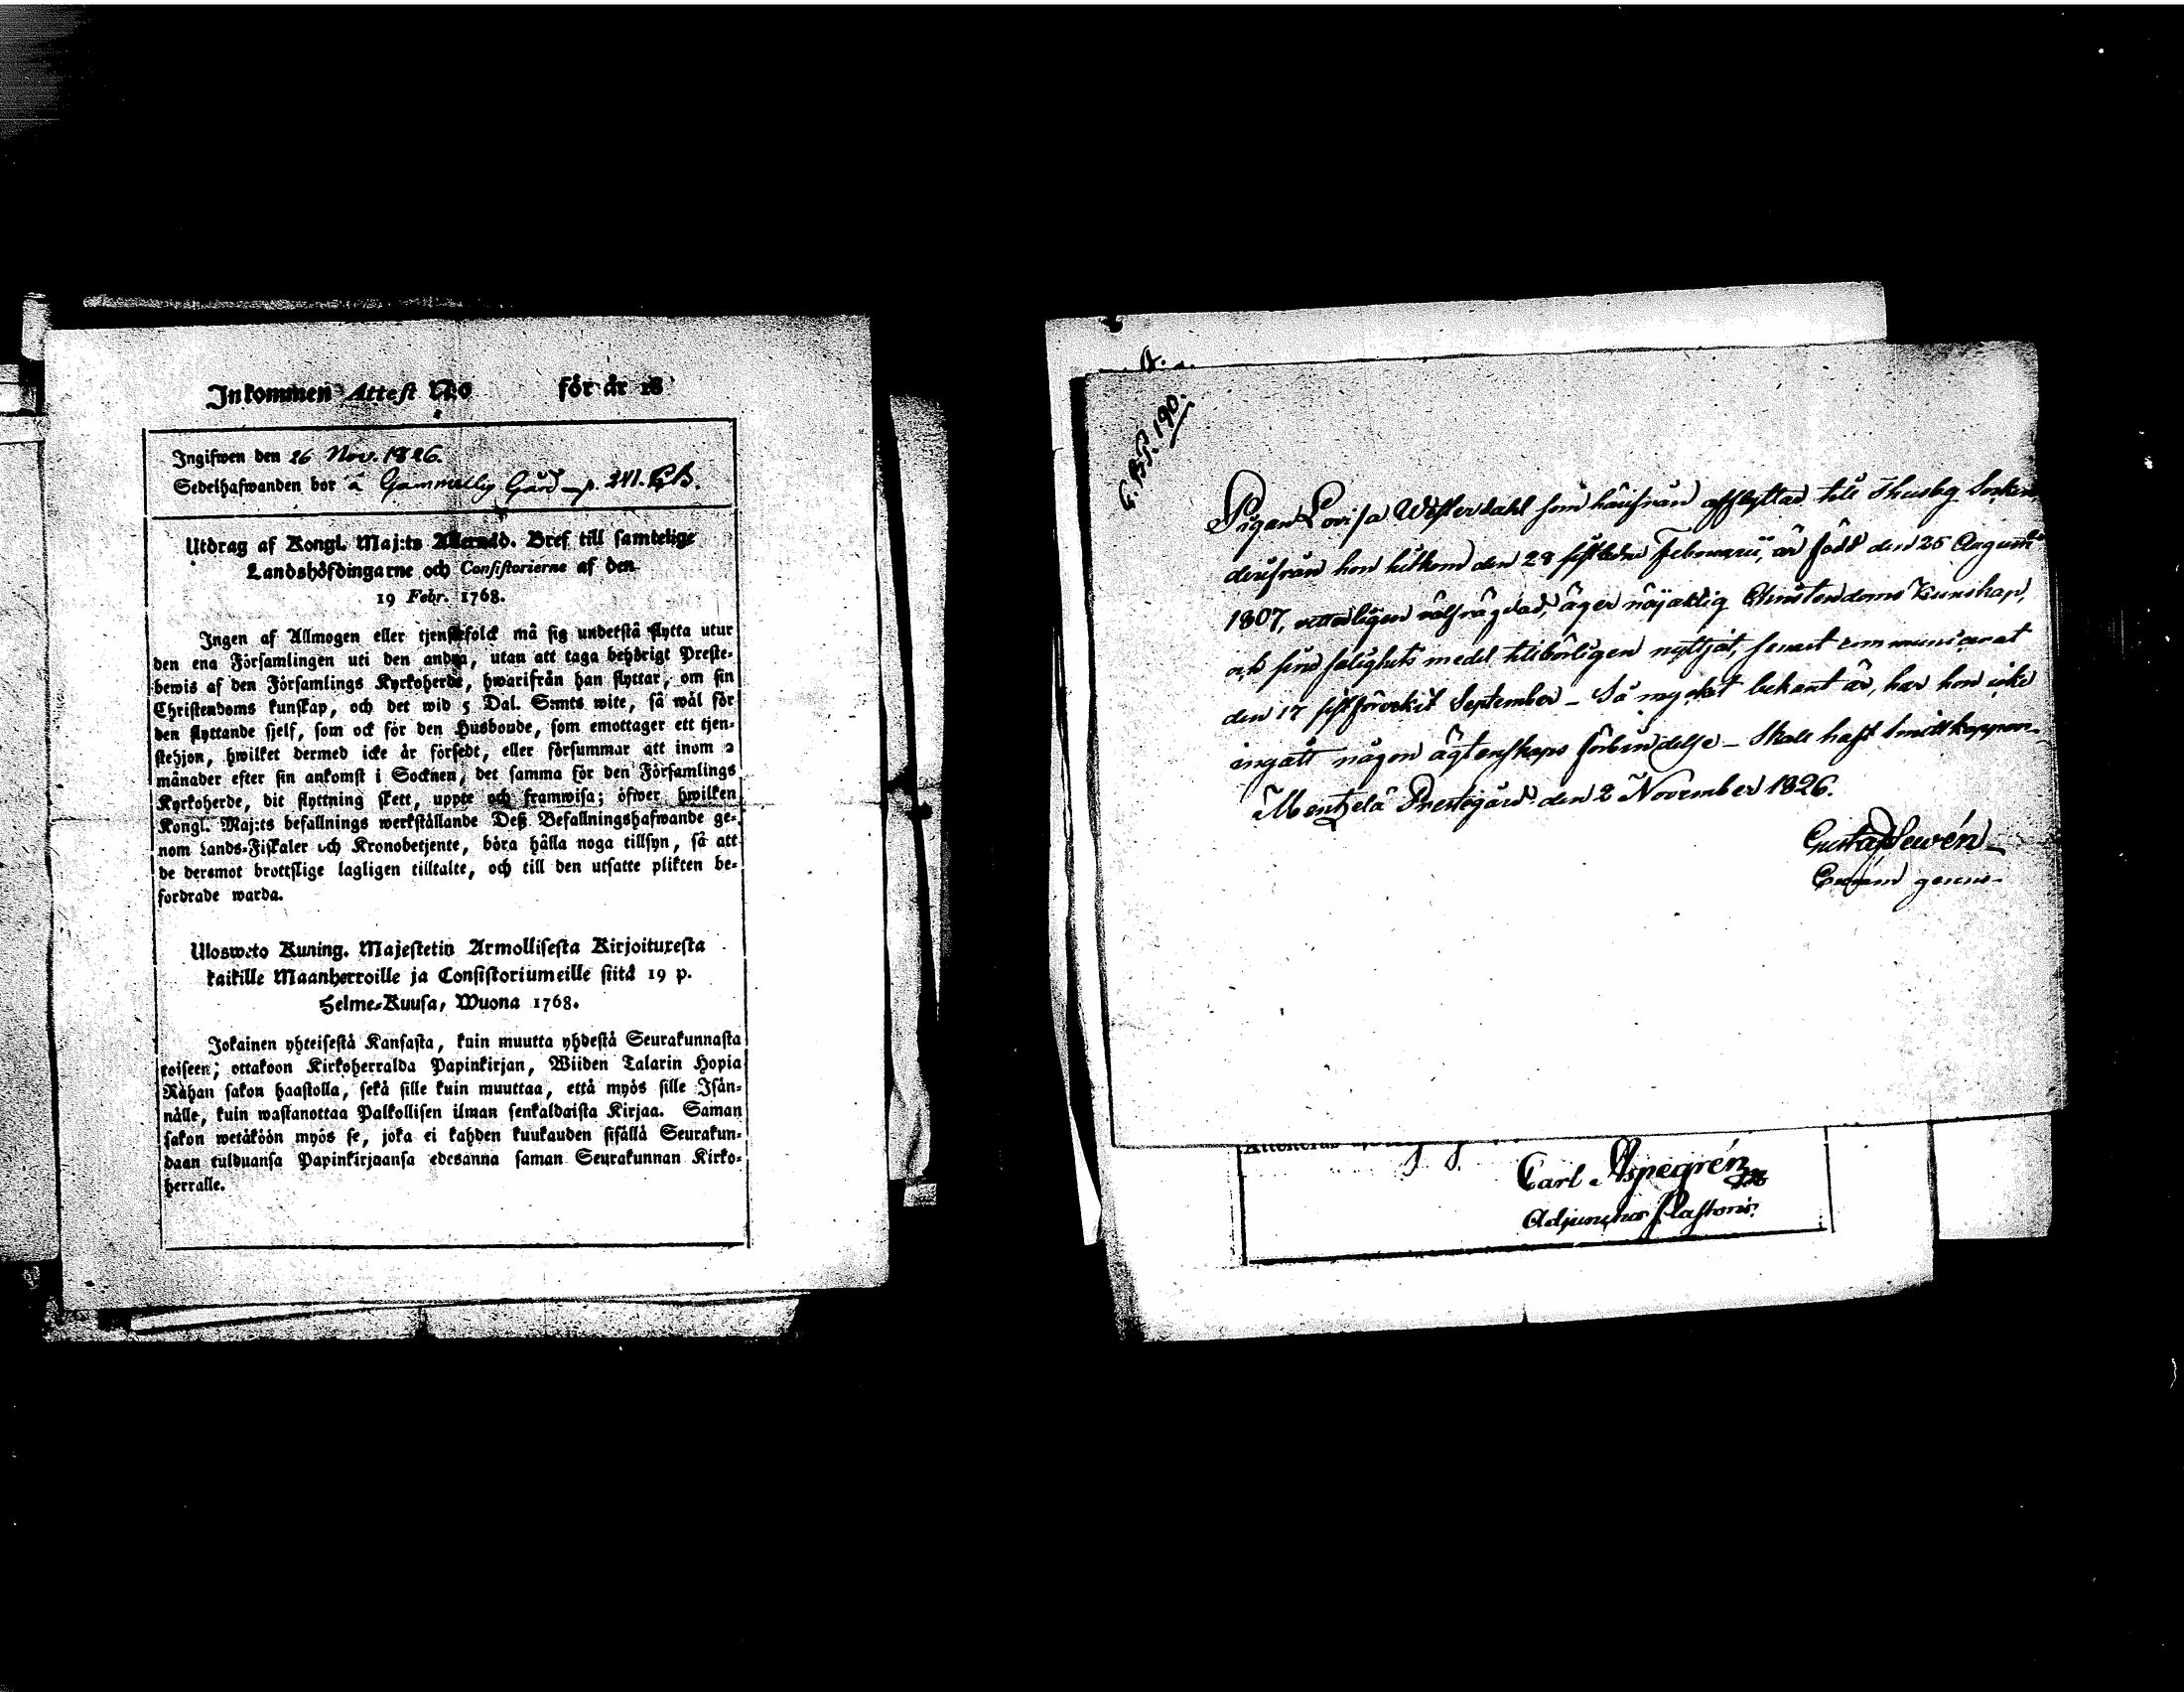 Inkommen Attest N:o för år 18
Ingifwen den 26 Nov. 1826.
Sedelhafwanden bor å Gammelby Gård p. 241. C.B.
Utdrag af Kongl. Maj:ts Allernåd. Bref till samtelige
Landshöfdingarne och Consistorierne af den
19 Febr. 1768.
Ingen af Allmogen eller tjenstefolck må sig understå flytta utur
den ena Församlingen uti den andra, utan att taga behörigt Preste-
bewis af den Församlings Kyrkoherde, hwarifrån han flyttar, om sin
Christendoms kunskap, och det wid 5 Dal. S:mts wite, så wäl för
den flyttande sjelf, som ock för den Husbonde, som emottager ett tjen-
stehjon, hwilket dermed icke är försedt, eller försummar att inom 2
månader efter sin ankomst i Socknen, det samma för den Församlings
Kyrkoherde, dit flyttning skett, uppte och framwisa; öfwer hwilken
Kongl. Maj:ts befallnings werkställande Deß Befallningshafwande ge-
nom Lands-Fiskaler och Kronobetjente, böra hålla noga tillsyn, så att
de deremot brottslige lagligen tilltalte, och till den utsatte plikten be-
fordrade warda.
Uloswето Kuning. Majestetin Armollisesta Kirjoituxesta
kaikille Maanherroille ja Consistoriumeille siitä 19 p.
Helme-Kuusa, Wuona 1768.
Jokainen yhteisestä Kansasta, kuin muutta yhdestä Seurakunnasta
toiseen; ottakoon Kirkoherralda Papinkirjan, Wiiden Talarin Hopia
Rahan sakon haastolla, sekä sille kuin muuttaa, että myös sille Isän-
nälle, kuin wastanottaa Palkollisen ilman senkaldaista Kirjaa. Saman
sakon wetäköön myös se, joka ei kahden kuukauden sisällä Seurakun-
daan tulduansa Papinkirjaansa edesanna saman Seurakunnan Kirko-
herralle.
C.B.S. 190.
Pigan Lovisa Westerdahl som härifrån afflyttad till Thusby Socken,
derifrån hon hitkom den 28 sistledne Februarii, är född den 25 Augusti
1807, vitterligen välfrägdad, äger nöjaktig Christendoms Kunskap,
och sine salighets medel tillbörligen nyttjat, senast communicerat
den 17 sistförvekit September – Så mycket bekant är, har hon icke
ingått någon ägtenskaps förbindelse – Skall haft smittkoppor –
Mentzelä Prestegård den 2 November 1826.
Gustaf Sewén
Carl Aspegrén
Adjunctus Pastoris.